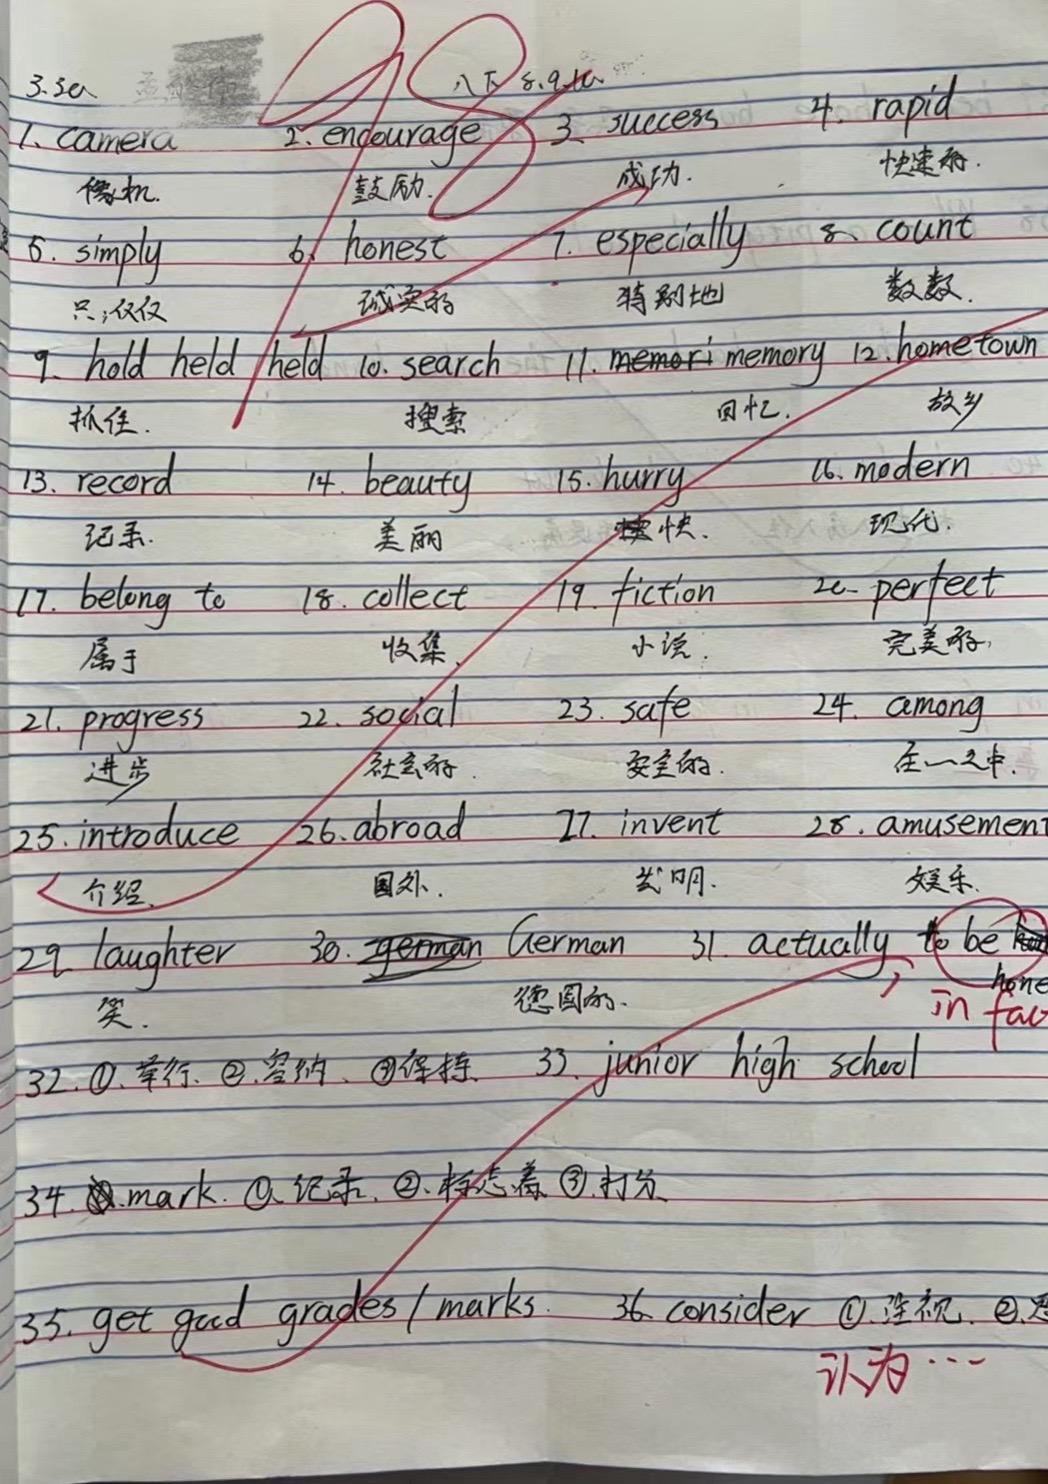 3.30 八下 8.9.10
98
1. camera 2. encourage 3. success 4. rapid
像机. 鼓励. 成功. 快速的.
5. simply 6. honest 7. especially 8. count
只;仅仅 诚实的 特别地 数数.
9. hold held held 10. search 11. memori memory 12. hometown
抓住. 搜索 回忆. 故乡
13. record 14. beauty 15. hurry 16. modern
记录. 美丽 快. 现代.
17. belong to 18. collect 19. fiction 20. perfect
属于 收集. 小说. 完美的.
21. progress 22. social 23. safe 24. among
进步 社会的. 安全的. 在一之中.
25. introduce 26. abroad 27. invent 28. amusement
介绍. 国外. 发明. 娱乐.
29. laughter 30. german German 31. actually to be
hone
笑. 德国的. in fac
32. ①.举行. ②.容纳. ③保持 33. junior high school
34. mark. ①.记录. ②.标志着 ③.打分
35. get good grades / marks. 36. consider ①.注视. ②.
认为…